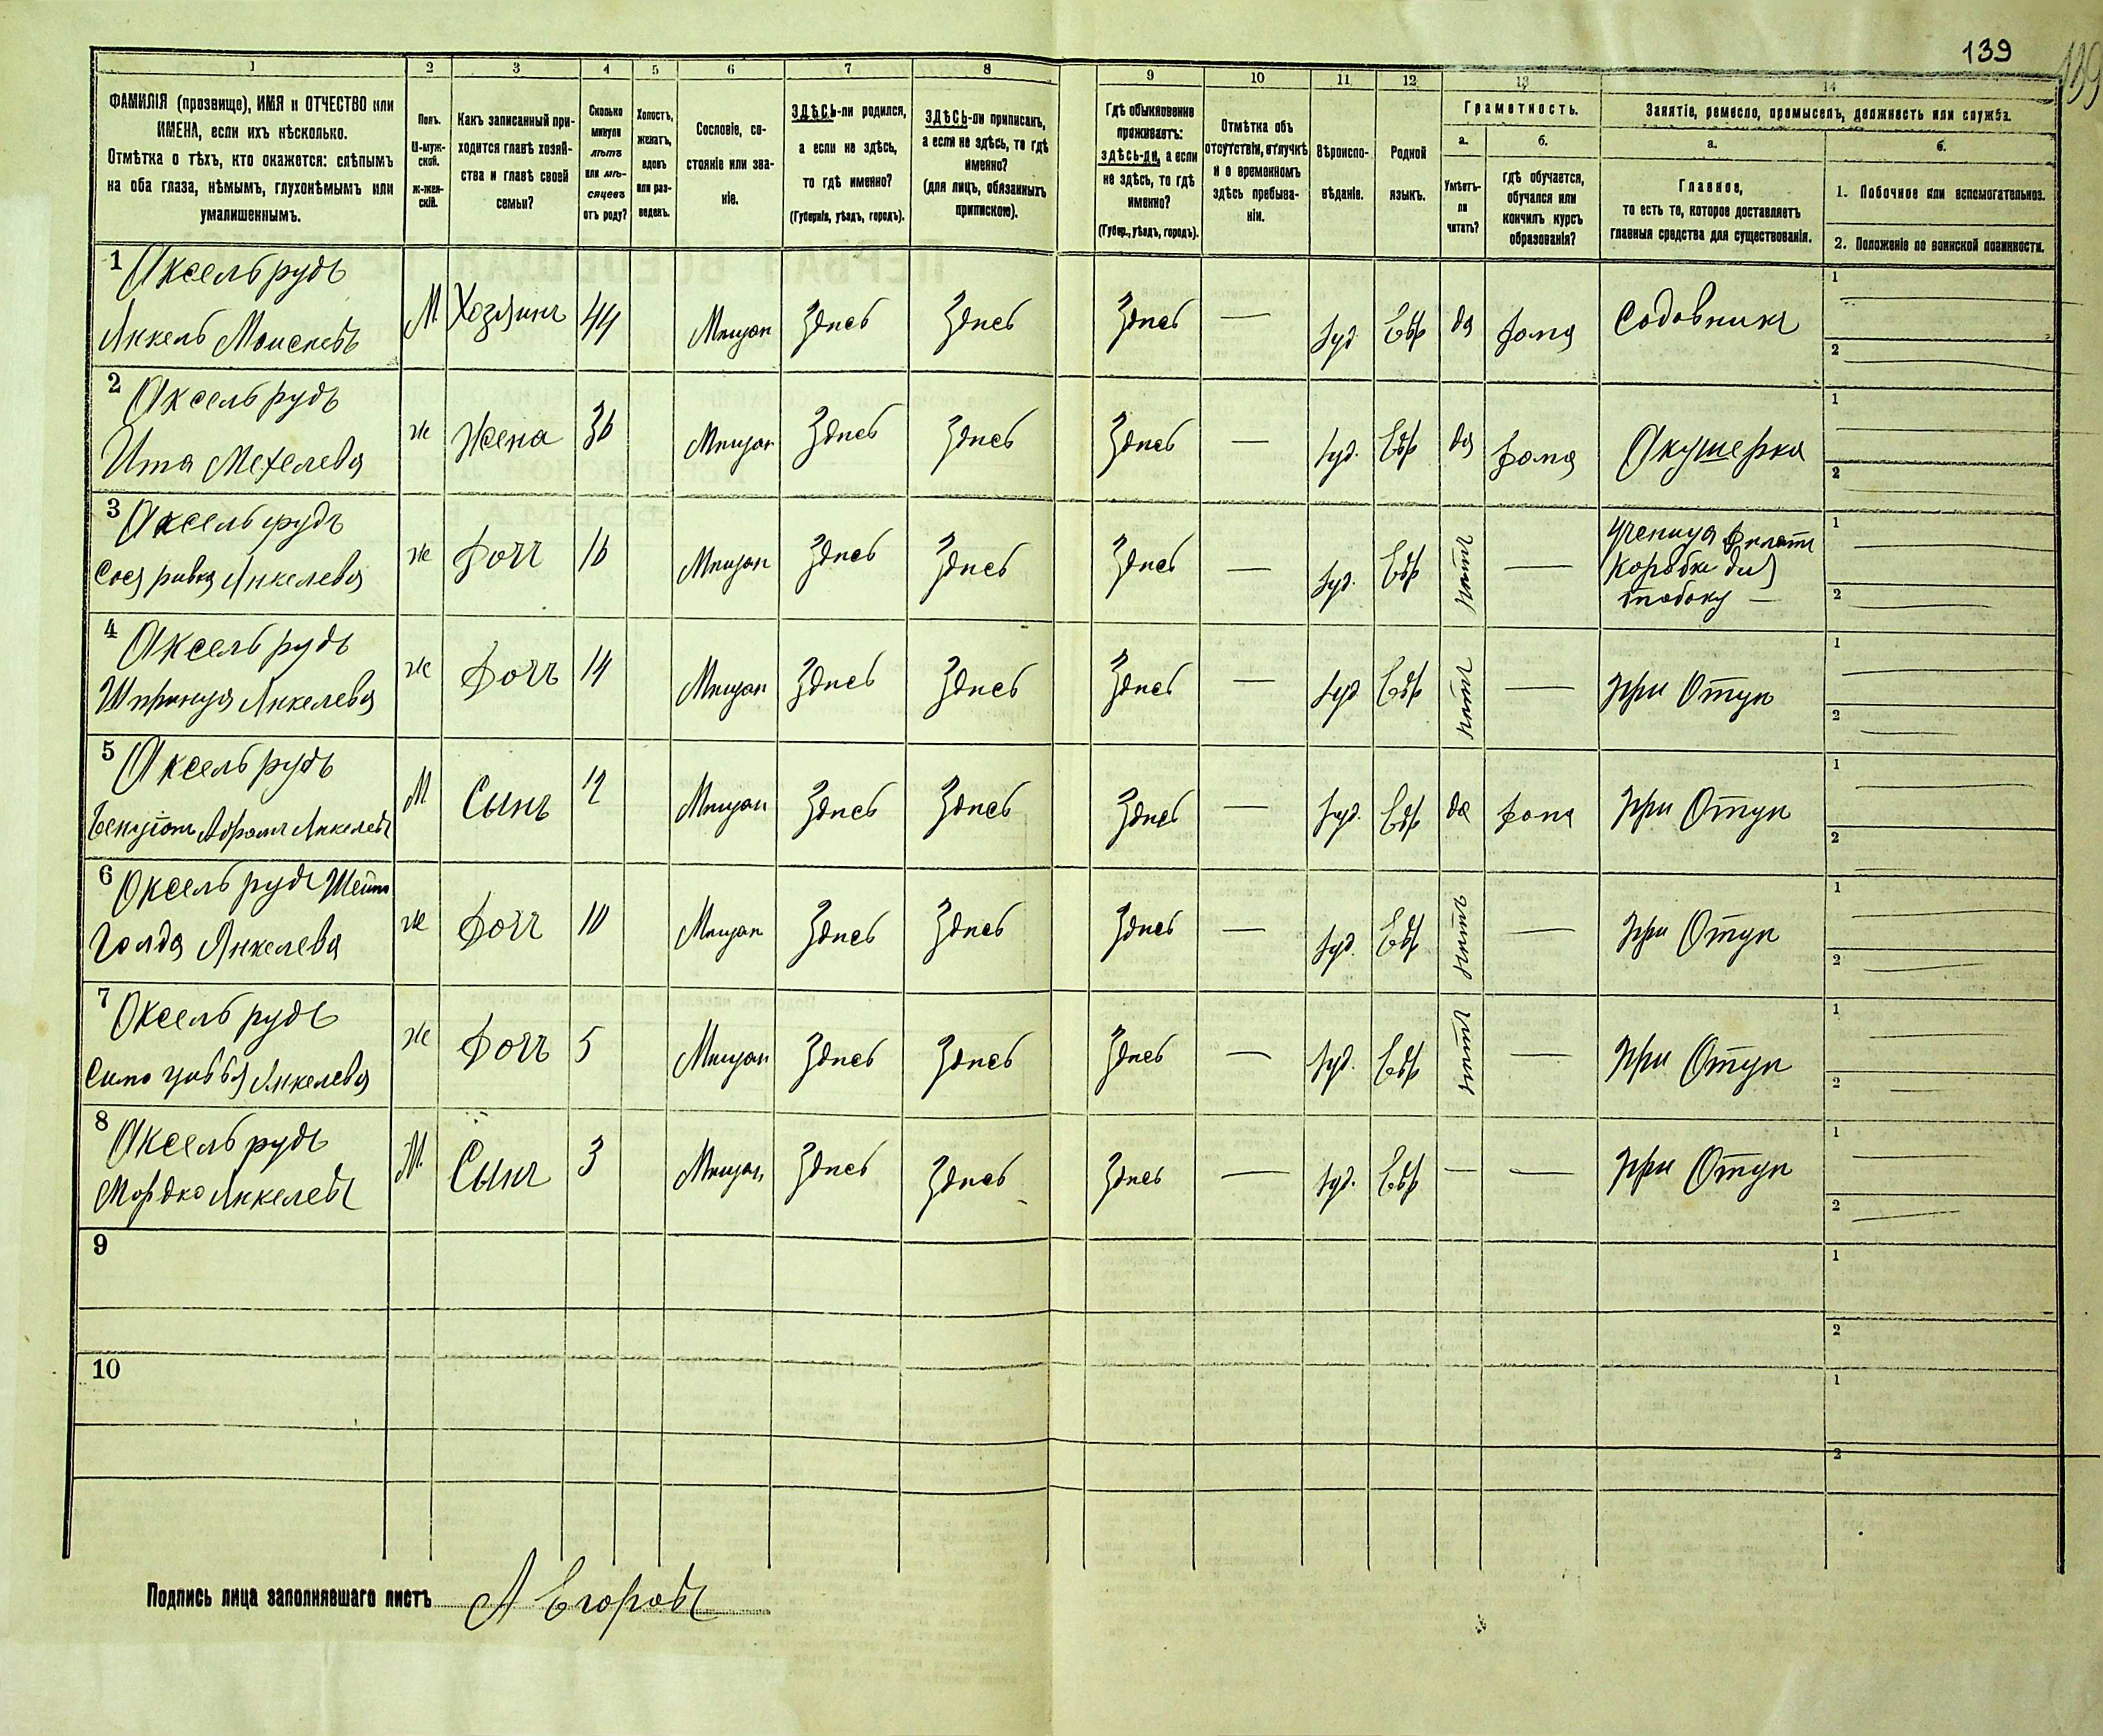 139
139
1 2 3 4 5 6 7 8 9 10 11 12 13 14
ФАМИЛІЯ (прозвище), ИМЯ и ОТЧЕСТВО или
ИМЕНА, если ихъ нѣсколько.
Отмѣтка о тѣхъ, кто окажется: слѣпымъ
на оба глаза, нѣмымъ, глухонѣмымъ или
умалишеннымъ.
Полъ.
М-муж-
ской.
ж-жен-
скій.
Какъ записанный при-
ходится главѣ хозяй-
ства и главѣ своей
семьи?
Сколько
минуло
лѣтъ
или мѣ-
сяцевъ
отъ роду?
Холостъ,
женатъ,
вдовъ
или раз-
веденъ.
Сословіе, со-
стояніе или зва-
ніе.
ЗДѢСЬ-ли родился,
а если не здѣсь,
то гдѣ именно?
(Губернія, уѣздъ, городъ).
ЗДѢСЬ-ли приписанъ,
а если не здѣсь, то гдѣ
именно?
(для лицъ, обязанныхъ
припискою).
Гдѣ обыкновенно
проживаетъ:
здѣсь-ли, а если
не здѣсь, то гдѣ
именно?
(Губер., уѣздъ, городъ).
Отмѣтка объ
отсутствіи, отлучкѣ
и о временномъ
здѣсь пребыва-
ніи.
Вѣроиспо-
вѣданіе.
Родной
языкъ.
Грамотность.
а.
Умѣетъ-
ли
читать?
б.
гдѣ обучается,
обучался или
кончилъ курсъ
образованія?
Занятіе, ремесло, промыселъ, должность или служба.
а.
Главное,
то есть то, которое доставляетъ
главныя средства для существованія.
б.
1. Побочное или вспомогательное.
2. Положеніе по воинской повинности.
1 Аксельрудъ
Янкель Моисеевъ М Хозяинъ 44 Мѣщан Здѣсь Здѣсь Здѣсь — Іуд Евр да дома Садовникъ 1 — 2 —
2 Аксельрудъ
Ита Мехелева ж Жена 36 Мѣщан Здѣсь Здѣсь Здѣсь — Іуд. Евр да дома Акушерка 1 — 2 —
3 Аксельрудъ
Сося ривка Янкелева ж Дочъ 16 Мѣщан Здѣсь Здѣсь Здѣсь — Іуд. Евр нѣтъ — Ученица дѣлать
Коробки для
табаку — 1 — 2 —
4 Аксельрудъ
Шпринца Янкелева ж Дочъ 14 Мѣщан Здѣсь Здѣсь Здѣсь — Іуд Евр нѣтъ — При Отцѣ 1 — 2 —
5 Аксельрудъ
Абрамъ Янкелевъ М Сынъ 12 Мѣщан Здѣсь Здѣсь Здѣсь — Іуд. Евр да дома При Отцѣ 1 — 2 —
6 Аксельрудъ Шейна
Голда Янкелева ж Дочъ 10 Мѣщан Здѣсь Здѣсь Здѣсь — Іуд. Евр нѣтъ — При Отцѣ 1 — 2 —
7 Аксельрудъ
Янкелева ж Дочъ 5 Мѣщан Здѣсь Здѣсь Здѣсь — Іуд. Евр нѣтъ — При Отцѣ 1 — 2 —
8 Аксельрудъ
Мордко Янкелевъ М Сынъ 3 Мѣщан Здѣсь Здѣсь Здѣсь — Іуд. Евр — — При Отцѣ 1 — 2 —
9 1 2
10 1 2
Подпись лица заполнявшаго листъ А Егоровъ